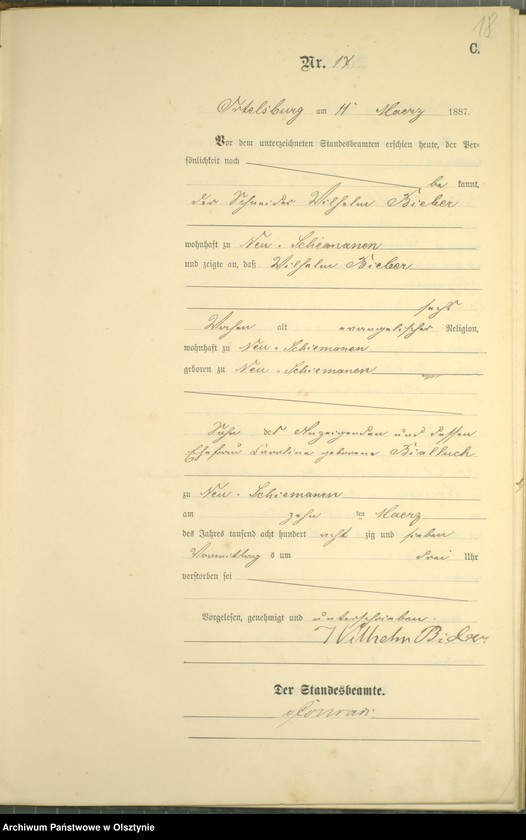 18
C.
Nr. 17
Ortelsburg am 11 Maerz 1887.
Vor dem unterzeichneten Standesbeamten erschien heute, der Per-
sönlichkeit nach
be kannt,
der Schneider Wilhelm Bieber
wohnhaft zu Neu-Schiemanen
und zeigte an, daß Wilhelm Bieber
sechs
Wochen alt evangelischer Religion,
wohnhaft zu Neu-Schiemanen
geboren zu Neu-Schiemanen
Sohn des Anzeigenden und dessen
Ehefrau Caroline geborene Bialluch
zu Neu-Schiemanen
am zehn ten Maerz
des Jahres tausend acht hundert acht zig und sieben
Vormittag s um drei Uhr
verstorben sei
Vorgelesen, genehmigt und unterschrieben.
Wilhelm Bieber
Der Standesbeamte.
Archiwum Państwowe w Olsztynie